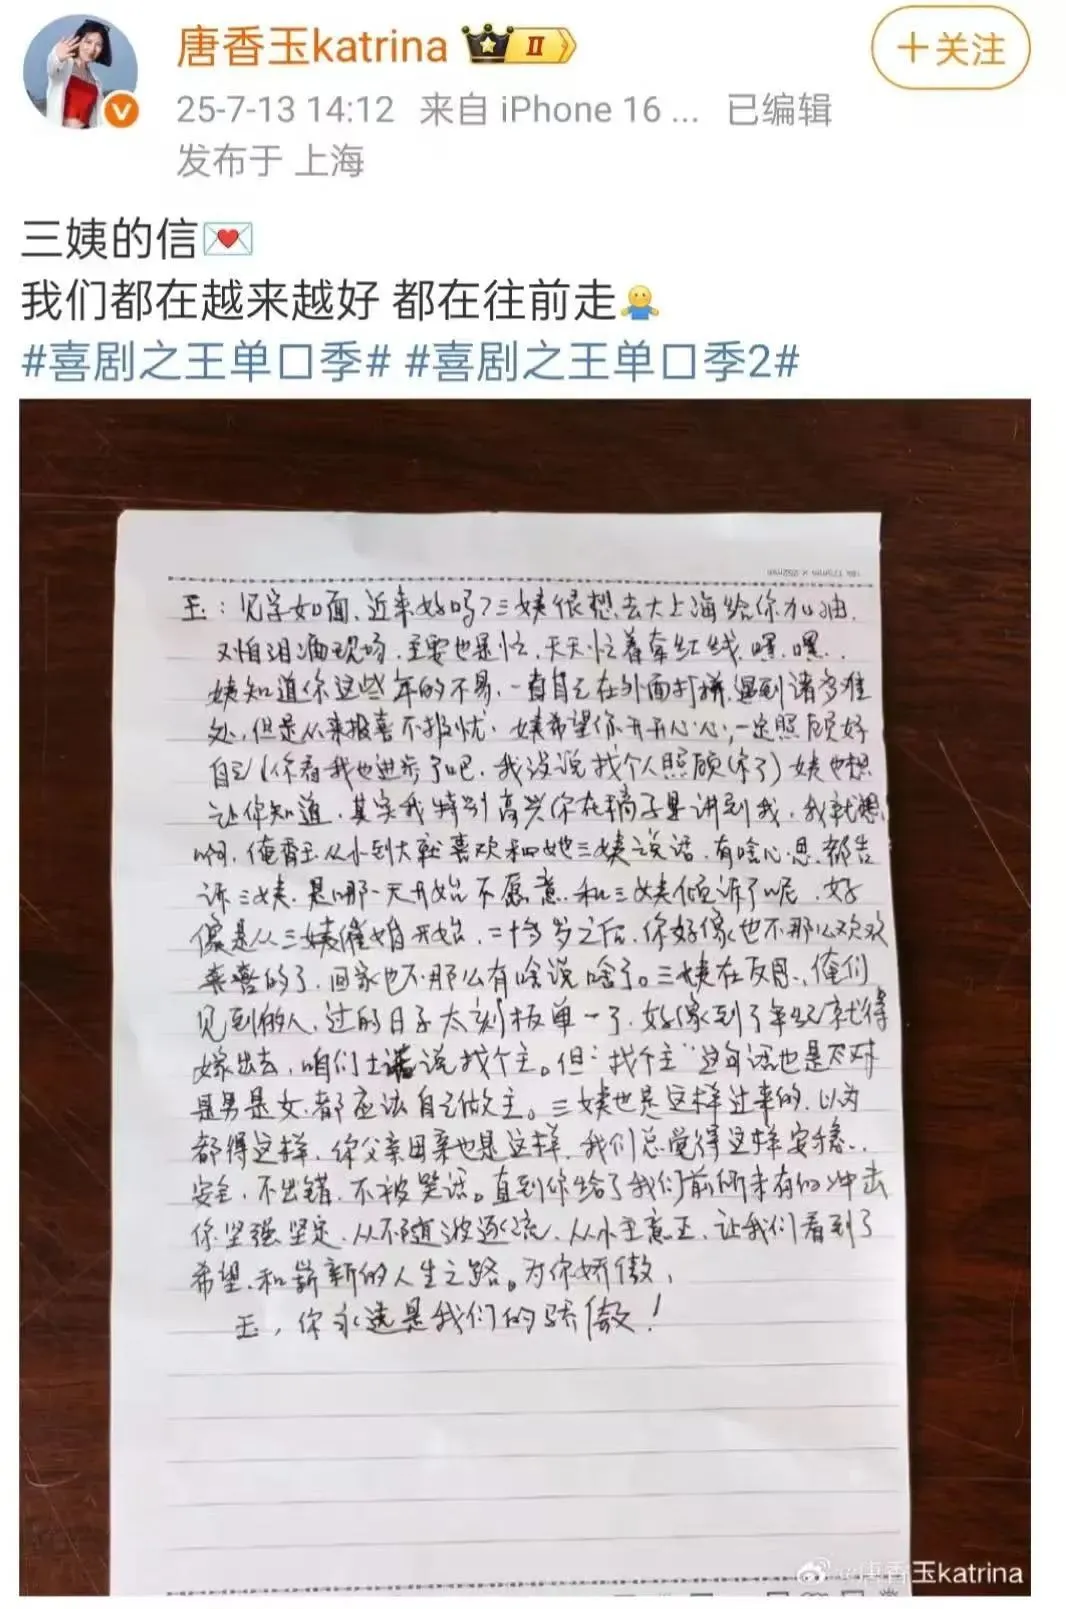 唐香玉katrina
II
+关注
25-7-13 14:12 来自 iPhone 16 ... 已编辑
发布于 上海
三姨的信
我们都在越来越好 都在往前走
#喜剧之王单口季# #喜剧之王单口季2#
玉：见字如面，近来好吗？三姨很想去大上海给你加油，
又怕泪洒现场，主要也是忙，天天忙着牵红线，嘿，嘿..
姨知道你这些年的不易，一直自己在外面打拼，遇到诸多难
处，但是从来报喜不报忧，姨希望你开开心心，一定照顾好
自己（你看我也进步了吧，我没说找个人照顾你了）姨也想
让你知道，其实我特别高兴你在稿子里讲到我，我就想
啊，俺香玉从小到大就喜欢和她三姨说话，有啥心思都告
诉三姨，是哪一天开始不愿意和三姨倾诉了呢，好
像是从三姨催婚开始，二十多岁之后，你好像也不那么欢欢
喜喜的了，回家也不那么有啥说啥了。三姨在反思，俺们
见到的人，过的日子太刻板单一了，好像到了年纪就得
嫁出去，咱们土话说找个主。但“找个主”这句话也是不对
是男是女，都应该自己做主。三姨也是这样过来的，以为
都得这样，你父亲母亲也是这样，我们总觉得这样安稳，
安全，不出错，不被笑话。直到你给了我们前所未有的冲击
你坚强坚定，从不随波逐流，从小主意正，让我们看到了
希望，和崭新的人生之路。为你骄傲，
玉，你永远是我们的骄傲！
@唐香玉katrina